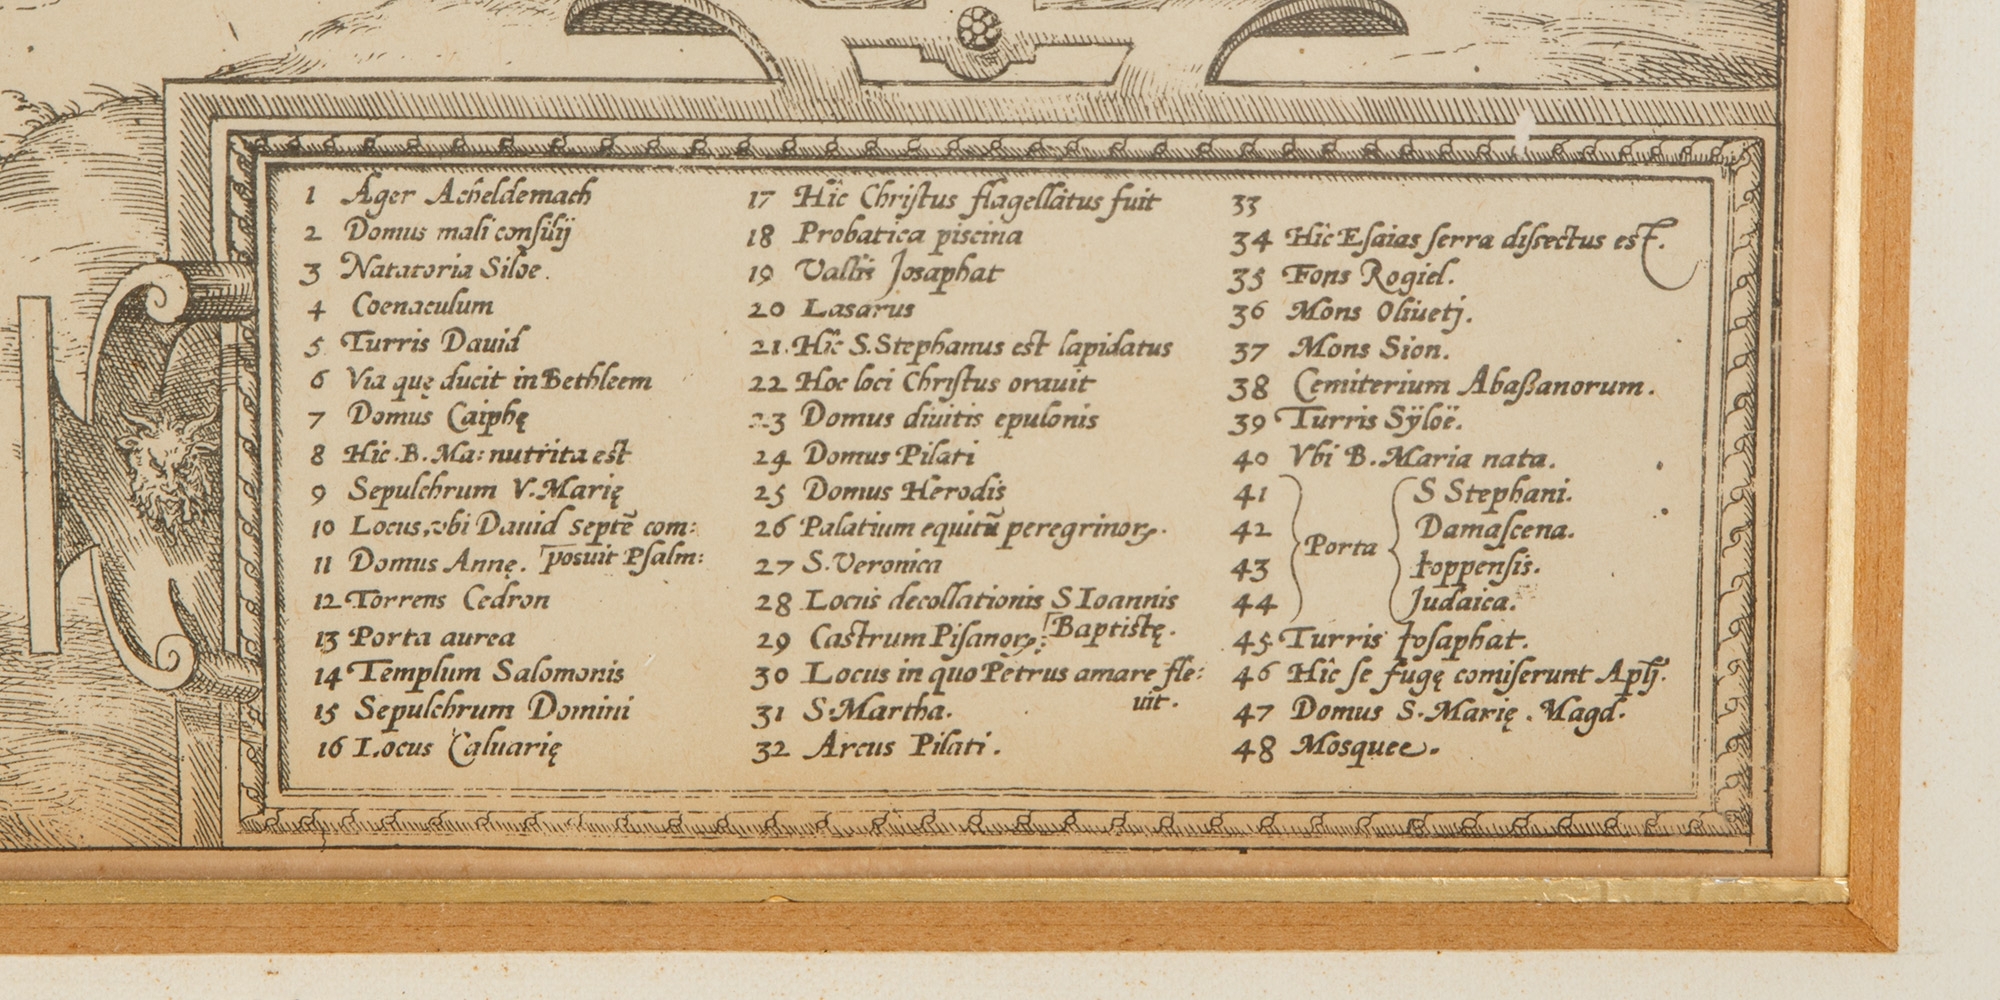 1 Ager Acheldemach
2 Domus mali consilij
3 Natatoria Siloe.
4 Coenaculum
5 Turris Dauid
6 Via quę ducit in Bethleem
7 Domus Caiphę
8 Hic .B. Ma: nutrita est
9 Sepulchrum V. Marię
10 Locus, vbi Dauid septẽ com:
posuit Psalm:
11 Domus Annę.
12 Torrens Cedron
13 Porta aurea
14 Templum Salomonis
15 Sepulchrum Domini
16 Locus Caluarię
17 Hîc Christus flagellatus fuit
18 Probatica piscina
19 Vallis Josaphat
20 Lasarus
21. Hîc S. Stephanus est lapidatus
22 Hoc loci Christus orauit
23 Domus diuitis epulonis
24 Domus Pilati
25 Domus Herodis
26 Palatium equitũ peregrinorꝝ.
27 S. Veronica
28 Locus decollationis S Ioannis
Baptistę.
29 Castrum Pisanorꝝ.
30 Locus in quo Petrus amare fle:
uit.
31 S. Martha.
32 Arcus Pilati.
33
34 Hîc Esaias serra dissectus est.
35 Fons Rogiel.
36 Mons Oliuetj.
37 Mons Sion.
38 Cemiterium Abaßanorum.
39 Turris Sÿloë.
40 Vbi B. Maria nata.
41 S Stephani.
42 Damascena.
Porta
43 Joppensis.
44 Judaica.
45 Turris Josaphat.
46 Hîc se fugę comiserunt Aplj.
47 Domus S. Marię. Magd.
48 Mosquee.